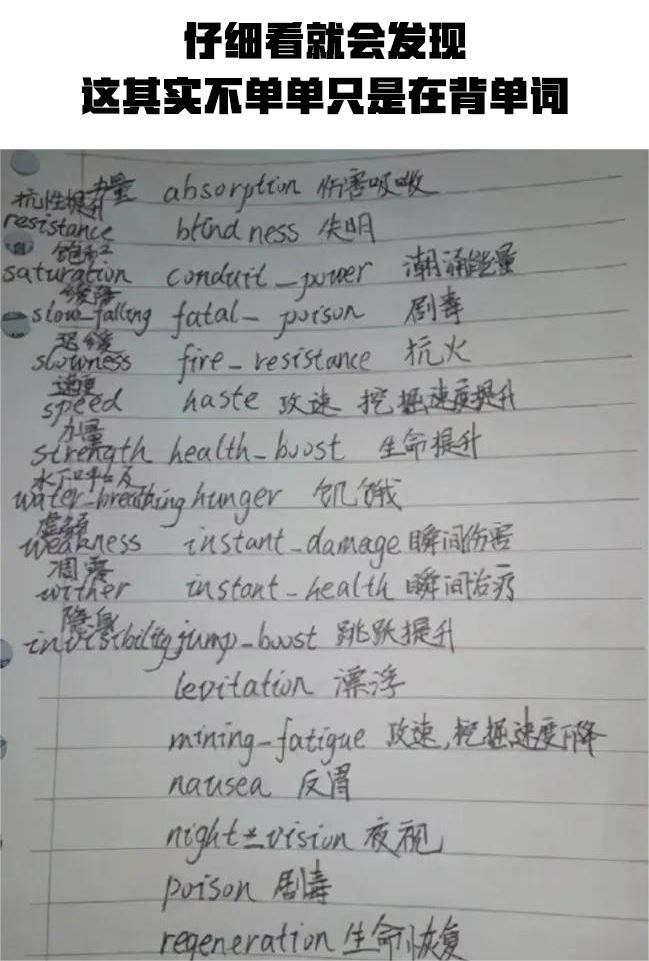 仔细看就会发现
这其实不单单只是在背单词
力量 absorption 伤害吸收
抗性提升
resistance blindness 失明
饱和
saturation conduit_power 潮涌能量
缓落
slow_falling fatal_poison 剧毒
迟缓
slowness fire_resistance 抗火
速度
speed haste 攻速 挖掘速度提升
力量
strength health_boost 生命提升
水下呼吸
water_breathing hunger 饥饿
虚弱
weakness instant_damage 瞬间伤害
凋零
wither instant_health 瞬间治疗
隐身
invisibility jump_boost 跳跃提升
levitation 漂浮
mining_fatigue 攻速,挖掘速度下降
nausea 反胃
night_vision 夜视
poison 剧毒
regeneration 生命恢复